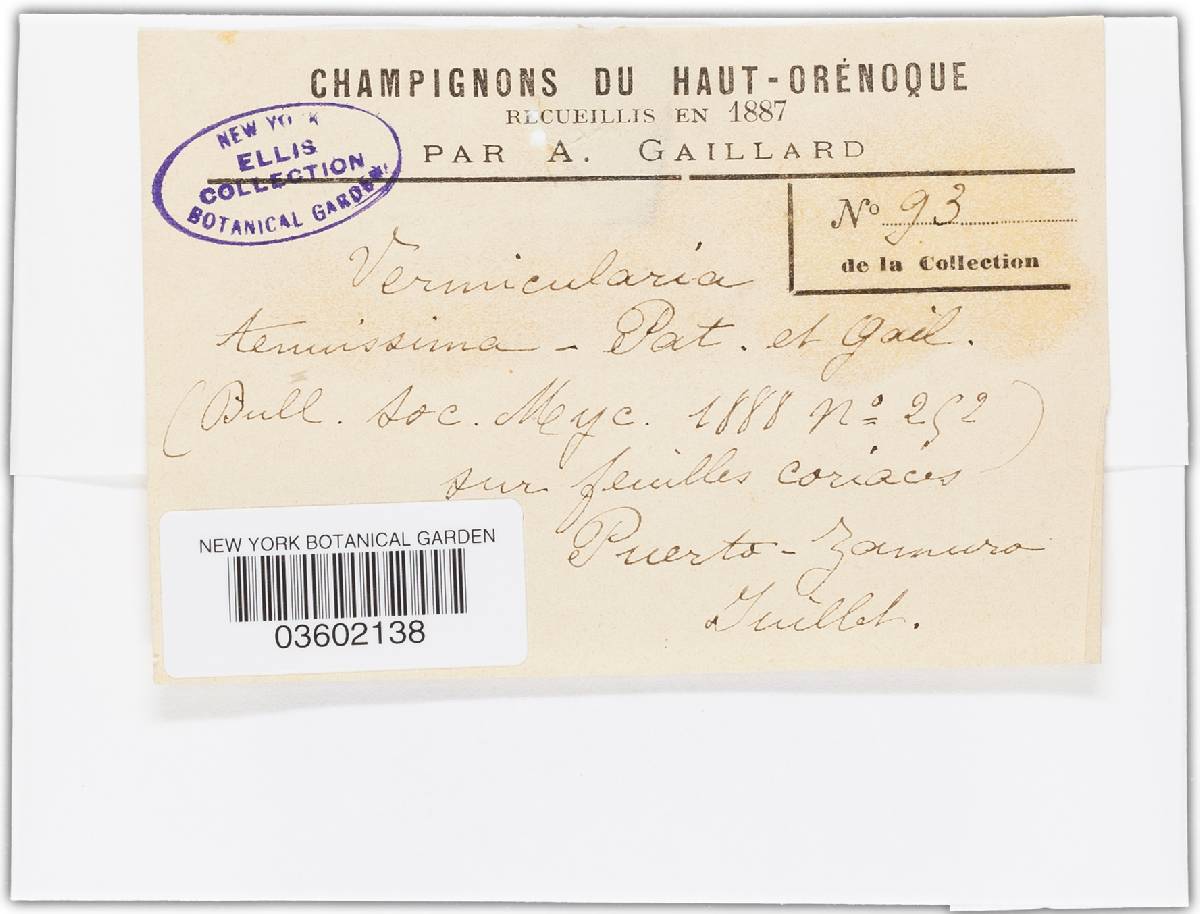 CHAMPIGNONS DU HAUT-ORÉNOQUE
RECUEILLIS EN 1887
PAR A. GAILLARD
NEW YORK
ELLIS
COLLECTION
BOTANICAL GARDEN
No 93
de la Collection
Vermicularia
tenuissima - Pat. et Gail.
(Bull. soc. Myc. 1888 no 252)
sur feuilles coriaces
Puerto-Zamuro
Juillet.
NEW YORK BOTANICAL GARDEN
03602138